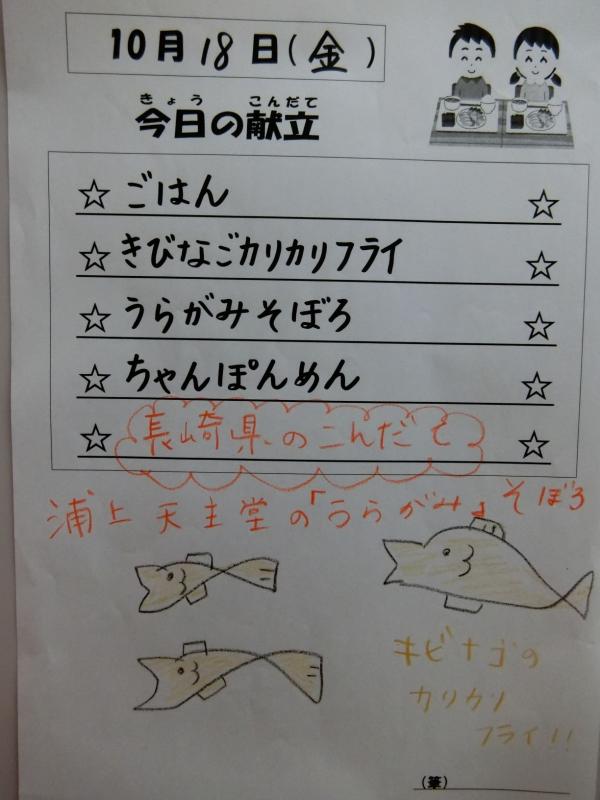 10月18日(金)
きょう こんだて
今日の献立
☆ ごはん ☆
☆ きびなごカリカリフライ ☆
☆ うらがみそぼろ ☆
☆ ちゃんぽんめん ☆
☆ 長崎県のこんだて ☆
浦上天主堂の「うらがみ」そぼろ
キビナゴの
カリカリ
フライ!!
(筆)